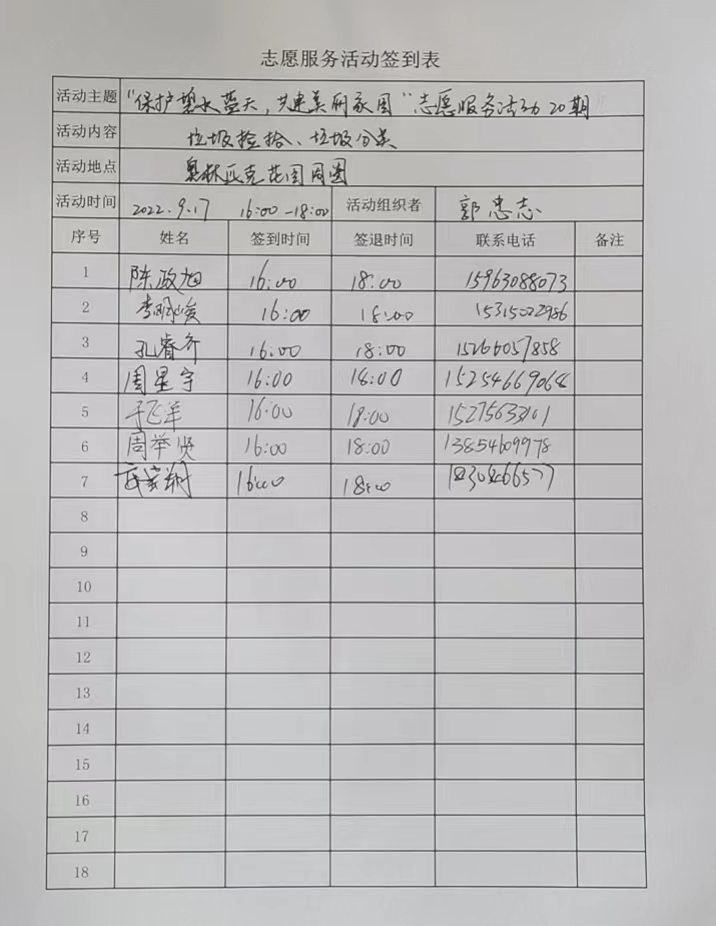 志愿服务活动签到表
活动主题 "保护碧水蓝天,共建美丽家园"志愿服务活动20期
活动内容 垃圾捡拾、垃圾分类
活动地点 奥林匹克花园周围
活动时间 2022.9.17 16:00-18:00 活动组织者 郭忠志
序号 姓名 签到时间 签退时间 联系电话 备注
1 陈政旭 16:00 18:00 15963088073
2 16:00 18:00 15315022986
3 孔睿齐 16:00 18:00 15266057858
4 周星宇 16:00 18:00 15254669068
5 于飞洋 16:00 18:00
6 周举贤 16:00 18:00 13854609978
7 16:00 18:00
8
9
10
11
12
13
14
15
16
17
18